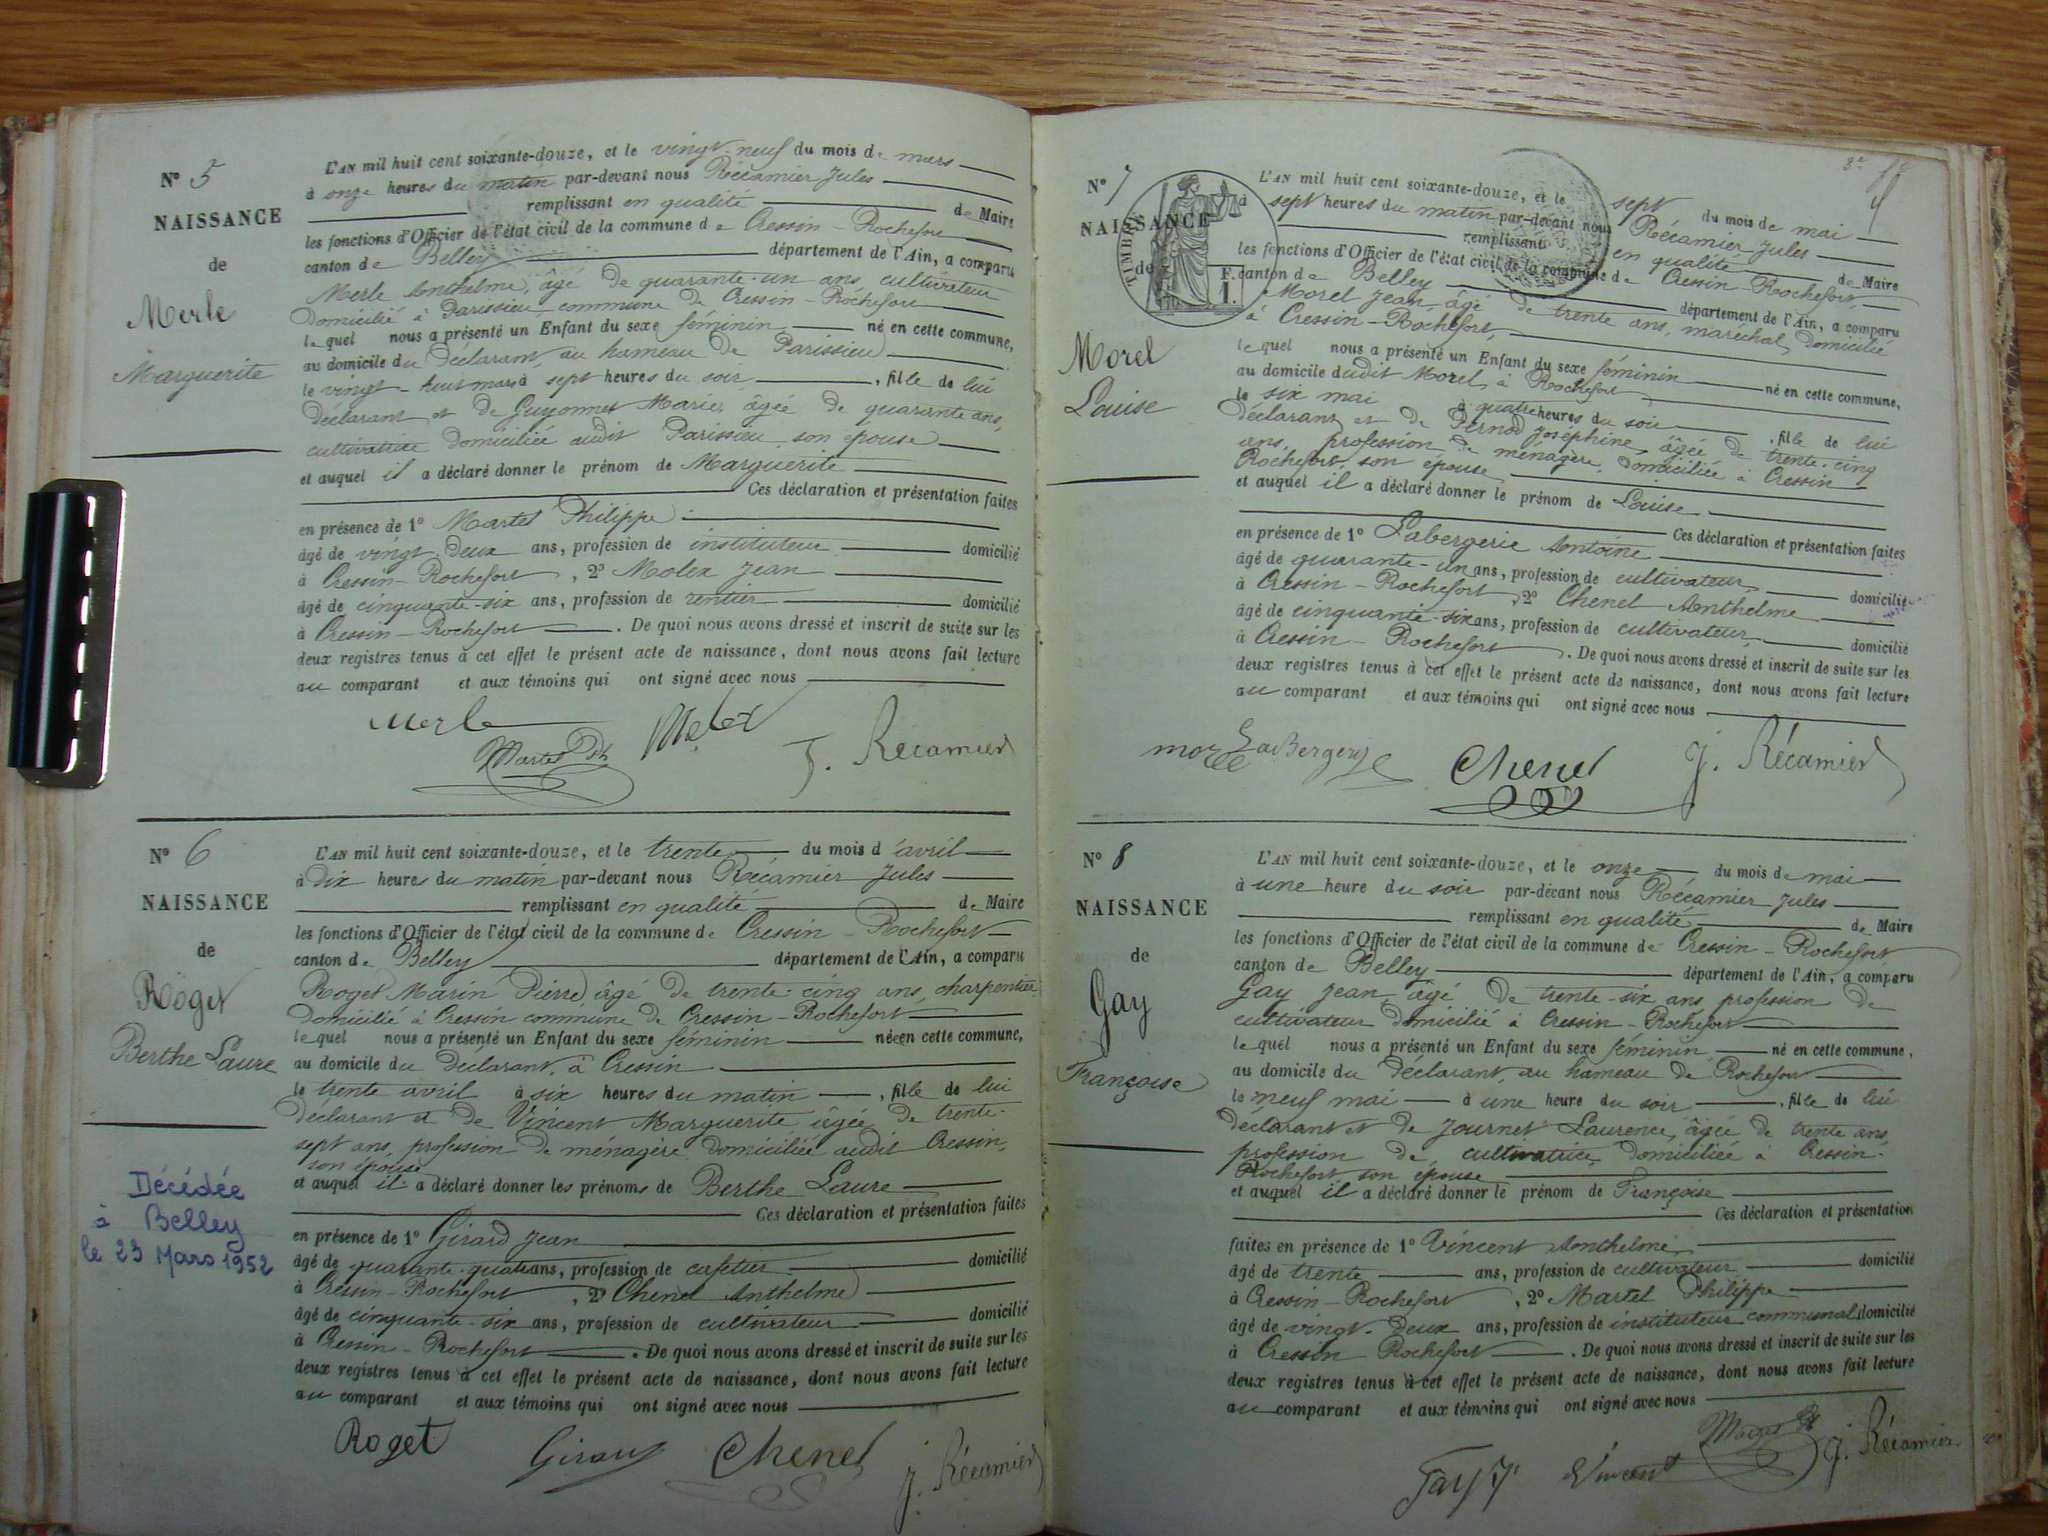 N° 5
NAISSANCE
de
Merle
Marguerite
L'AN mil huit cent soixante-douze, et le vingt-neuf du mois de mars
à onze heures du matin par-devant nous Récamier Jules
remplissant en qualité de Maire
les fonctions d'Officier de l'état civil de la commune de Cressin-Rochefort
canton de Belley département de l'Ain, a comparu
Merle Anthelme, âgé de quarante-un ans, cultivateur
domicilié à Parissieu commune de Cressin-Rochefort
lequel nous a présenté un Enfant du sexe féminin né en cette commune,
au domicile du déclarant, au hameau de Parissieu
le vingt-huit mars à sept heures du soir, fille de lui
déclarant et de Guyonnet Marie, âgée de quarante ans,
cultivatrice domiciliée audit Parissieu, son épouse
et auquel il a déclaré donner le prénom de Marguerite
Ces déclaration et présentation faites
en présence de 1° Martel Philippe
âgé de vingt-deux ans, profession de instituteur domicilié
à Cressin-Rochefort, 2° Molex Jean
âgé de cinquante-six ans, profession de rentier domicilié
à Cressin-Rochefort. De quoi nous avons dressé et inscrit de suite sur les
deux registres tenus à cet effet le présent acte de naissance, dont nous avons fait lecture
au comparant et aux témoins qui ont signé avec nous
Merle Molex
Martel Ph J. Récamier
N° 6
NAISSANCE
de
Roget
Berthe Laure
Décédée
à Belley
le 23 Mars 1952
L'AN mil huit cent soixante-douze, et le trente du mois d'avril
à dix heures du matin par-devant nous Récamier Jules
remplissant en qualité de Maire
les fonctions d'Officier de l'état civil de la commune de Cressin-Rochefort
canton de Belley département de l'Ain, a comparu
Roget Marin Pierre, âgé de trente-cinq ans, charpentier
domicilié à Cressin commune de Cressin-Rochefort
lequel nous a présenté un Enfant du sexe féminin née en cette commune,
au domicile du déclarant, à Cressin
le trente avril à six heures du matin, fille de lui
déclarant et de Vincent Marguerite, âgée de trente-
sept ans, profession de ménagère domiciliée audit Cressin,
son épouse
et auquel il a déclaré donner les prénoms de Berthe Laure
Ces déclaration et présentation faites
en présence de 1° Girard Jean
âgé de quarante-quatre ans, profession de cafetier domicilié
à Cressin-Rochefort, 2° Chenel Anthelme
âgé de cinquante-six ans, profession de cultivateur domicilié
à Cressin-Rochefort. De quoi nous avons dressé et inscrit de suite sur les
deux registres tenus à cet effet le présent acte de naissance, dont nous avons fait lecture
au comparant et aux témoins qui ont signé avec nous
Roget Girard Chenel J. Récamier
N° 7
NAISSANCE
de
TIMBRE
F.
1.
Morel
Louise
L'AN mil huit cent soixante-douze, et le sept du mois de mai
à sept heures du matin par-devant nous Récamier Jules
remplissant en qualité de Maire
les fonctions d'Officier de l'état civil de la commune de Cressin-Rochefort
canton de Belley département de l'Ain, a comparu
Morel Jean, âgé de trente ans, maréchal, domicilié
à Cressin-Rochefort
lequel nous a présenté un Enfant du sexe féminin né en cette commune,
au domicile dudit Morel, à Rochefort
le six mai à quatre heures du soir, fille de lui
déclarant et de Pernod Joséphine, âgée de trente-cinq
ans, profession de ménagère, domiciliée à Cressin
Rochefort, son épouse
et auquel il a déclaré donner le prénom de Louise
Ces déclaration et présentation faites
en présence de 1° Labergerie Antoine
âgé de quarante-un ans, profession de cultivateur domicilié
à Cressin-Rochefort, 2° Chenel Anthelme
âgé de cinquante-six ans, profession de cultivateur domicilié
à Cressin-Rochefort. De quoi nous avons dressé et inscrit de suite sur les
deux registres tenus à cet effet le présent acte de naissance, dont nous avons fait lecture
au comparant et aux témoins qui ont signé avec nous
Chenel J. Récamier
N° 8
NAISSANCE
de
Gay
Françoise
L'AN mil huit cent soixante-douze, et le onze du mois de mai
à une heure du soir par-devant nous Récamier Jules
remplissant en qualité de Maire
les fonctions d'Officier de l'état civil de la commune de Cressin-Rochefort
canton de Belley département de l'Ain, a comparu
Gay Jean âgé de trente-six ans, profession de
cultivateur domicilié à Cressin-Rochefort
lequel nous a présenté un Enfant du sexe féminin né en cette commune,
au domicile du déclarant, au hameau de Rochefort
le neuf mai à une heure du soir, fille de lui
déclarant et de Journet Laurence, âgée de trente ans,
profession de cultivatrice, domiciliée à Cressin-
Rochefort son épouse
et auquel il a déclaré donner le prénom de Françoise
Ces déclaration et présentation
faites en présence de 1° Vincent Anthelme
âgé de trente ans, profession de cultivateur domicilié
à Cressin-Rochefort, 2° Martel Philippe
âgé de vingt-deux ans, profession de instituteur communal domicilié
à Cressin Rochefort. De quoi nous avons dressé et inscrit de suite sur les
deux registres tenus à cet effet le présent acte de naissance, dont nous avons fait lecture
au comparant et aux témoins qui ont signé avec nous
Vincent J. Récamier